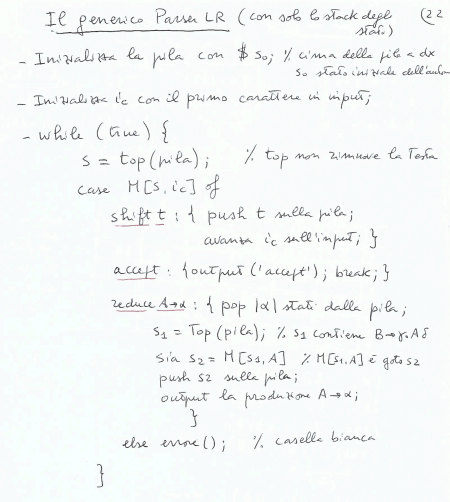 Il generico Parser LR (con solo lo stack degli stati) (22
- Inizializza la pila con $ S0; % cima della pila a dx
S0 stato iniziale dell'automa
- Inizializza ic con il primo carattere in input;
- while (true) {
S = top(pila); % top non rimuove la Testa
case M[S, ic] of
shift t : { push t sulla pila;
avanza ic sull'input; }
accept : {output('accept'); break;}
reduce A→α : { pop |α| stati dalla pila;
S1 = Top(pila); % S1 contiene B→γ.Aδ
Sia S2 = M[S1,A] % M[S1,A] è goto S2
push S2 sulla pila;
output la produzione A→α;
}
else errore(); % casella bianca
}